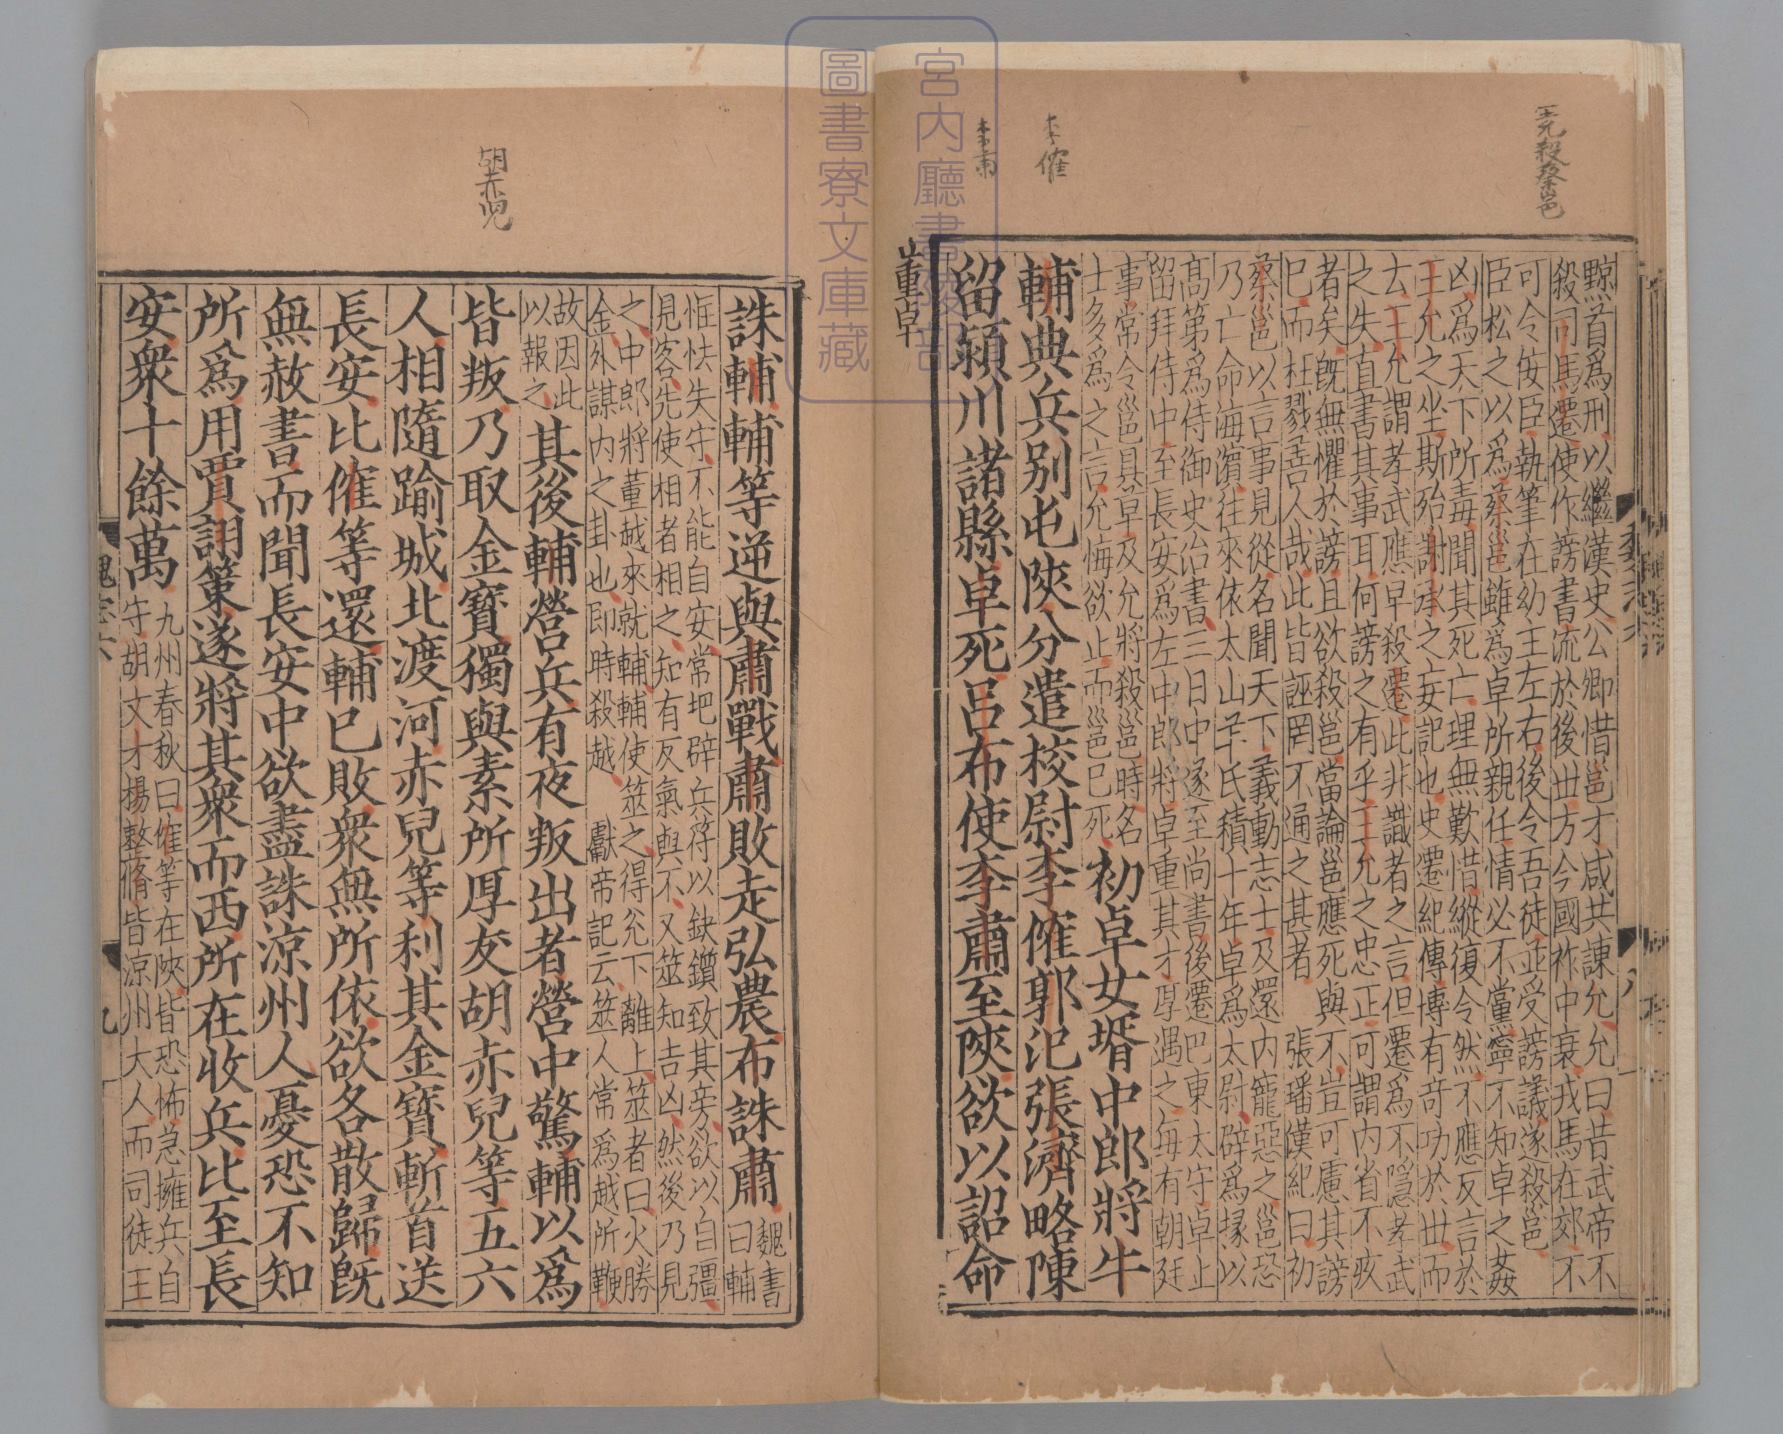 王允殺蔡邕
李傕
李肅
黥首爲刑以繼漢史公卿惜邕才咸共諫允允曰昔武帝不
殺司馬遷使作謗書流於後世方今國祚中衰戎馬在郊不
可令佞臣執筆在幼主左右後令吾徒並受謗議遂殺邕
臣松之以爲蔡邕雖爲卓所親任情必不黨寧不知卓之姦
凶爲天下所毒聞其死亡理無歎惜縱復令然不應反言於
王允之坐斯殆謝承之妄記也史遷紀傳博有奇功於世而
云王允謂孝武應早殺遷此非識者之言但遷爲不隱孝武
之失直書其事耳何謗之有乎王允之忠正可謂内省不疚
者矣旣無懼於謗且欲殺邕當論邕應死與不豈可慮其謗
巳而枉戮善人哉此皆誣罔不通之甚者　張璠漢紀曰初
蔡邕以言事見徙名聞天下義動志士及還内寵惡之邕恐
乃亡命海濱往來依太山羊氏積十年卓爲太尉辟爲掾以
高第爲侍御史治書三日中遂至尚書後遷巴東太守卓止
留拜侍中至長安爲左中郎將卓重其才厚遇之每有朝廷
事常令邕具草及允將殺邕時名
士多爲之言允悔欲止而邕巳死
初卓女壻中郎將牛
輔典兵别屯陝分遣校尉李傕郭汜張濟略陳
留潁川諸縣卓死吕布使李肅至陝欲以詔命
董卓
宮内廳書陵部
圖書寮文庫藏
胡赤兒
誅輔輔等逆與肅戰肅敗走弘農布誅肅
魏書
曰輔
恇怯失守不能自安常把辟兵符以鈇鑕致其旁欲以自彊
見客先使相者相之知有反氣與不又筮知吉凶然後乃見
之中郎將董越來就輔輔使筮之得兊下離上筮者曰火勝
金外謀内之卦也即時殺越　獻帝記云筮人常爲越所鞭
故因此
以報之
其後輔營兵有夜叛出者營中驚輔以爲
皆叛乃取金寶獨與素所厚友胡赤兒等五六
人相隨踰城北渡河赤兒等利其金寶斬首送
長安比傕等還輔巳敗衆無所依欲各散歸旣
無赦書而聞長安中欲盡誅涼州人憂恐不知
所爲用賈詡策遂將其衆而西所在收兵比至長
安衆十餘萬
九州春秋曰傕等在陝皆恐怖急擁兵自
守胡文才楊整脩皆涼州大人而司徒王
魏志六
九